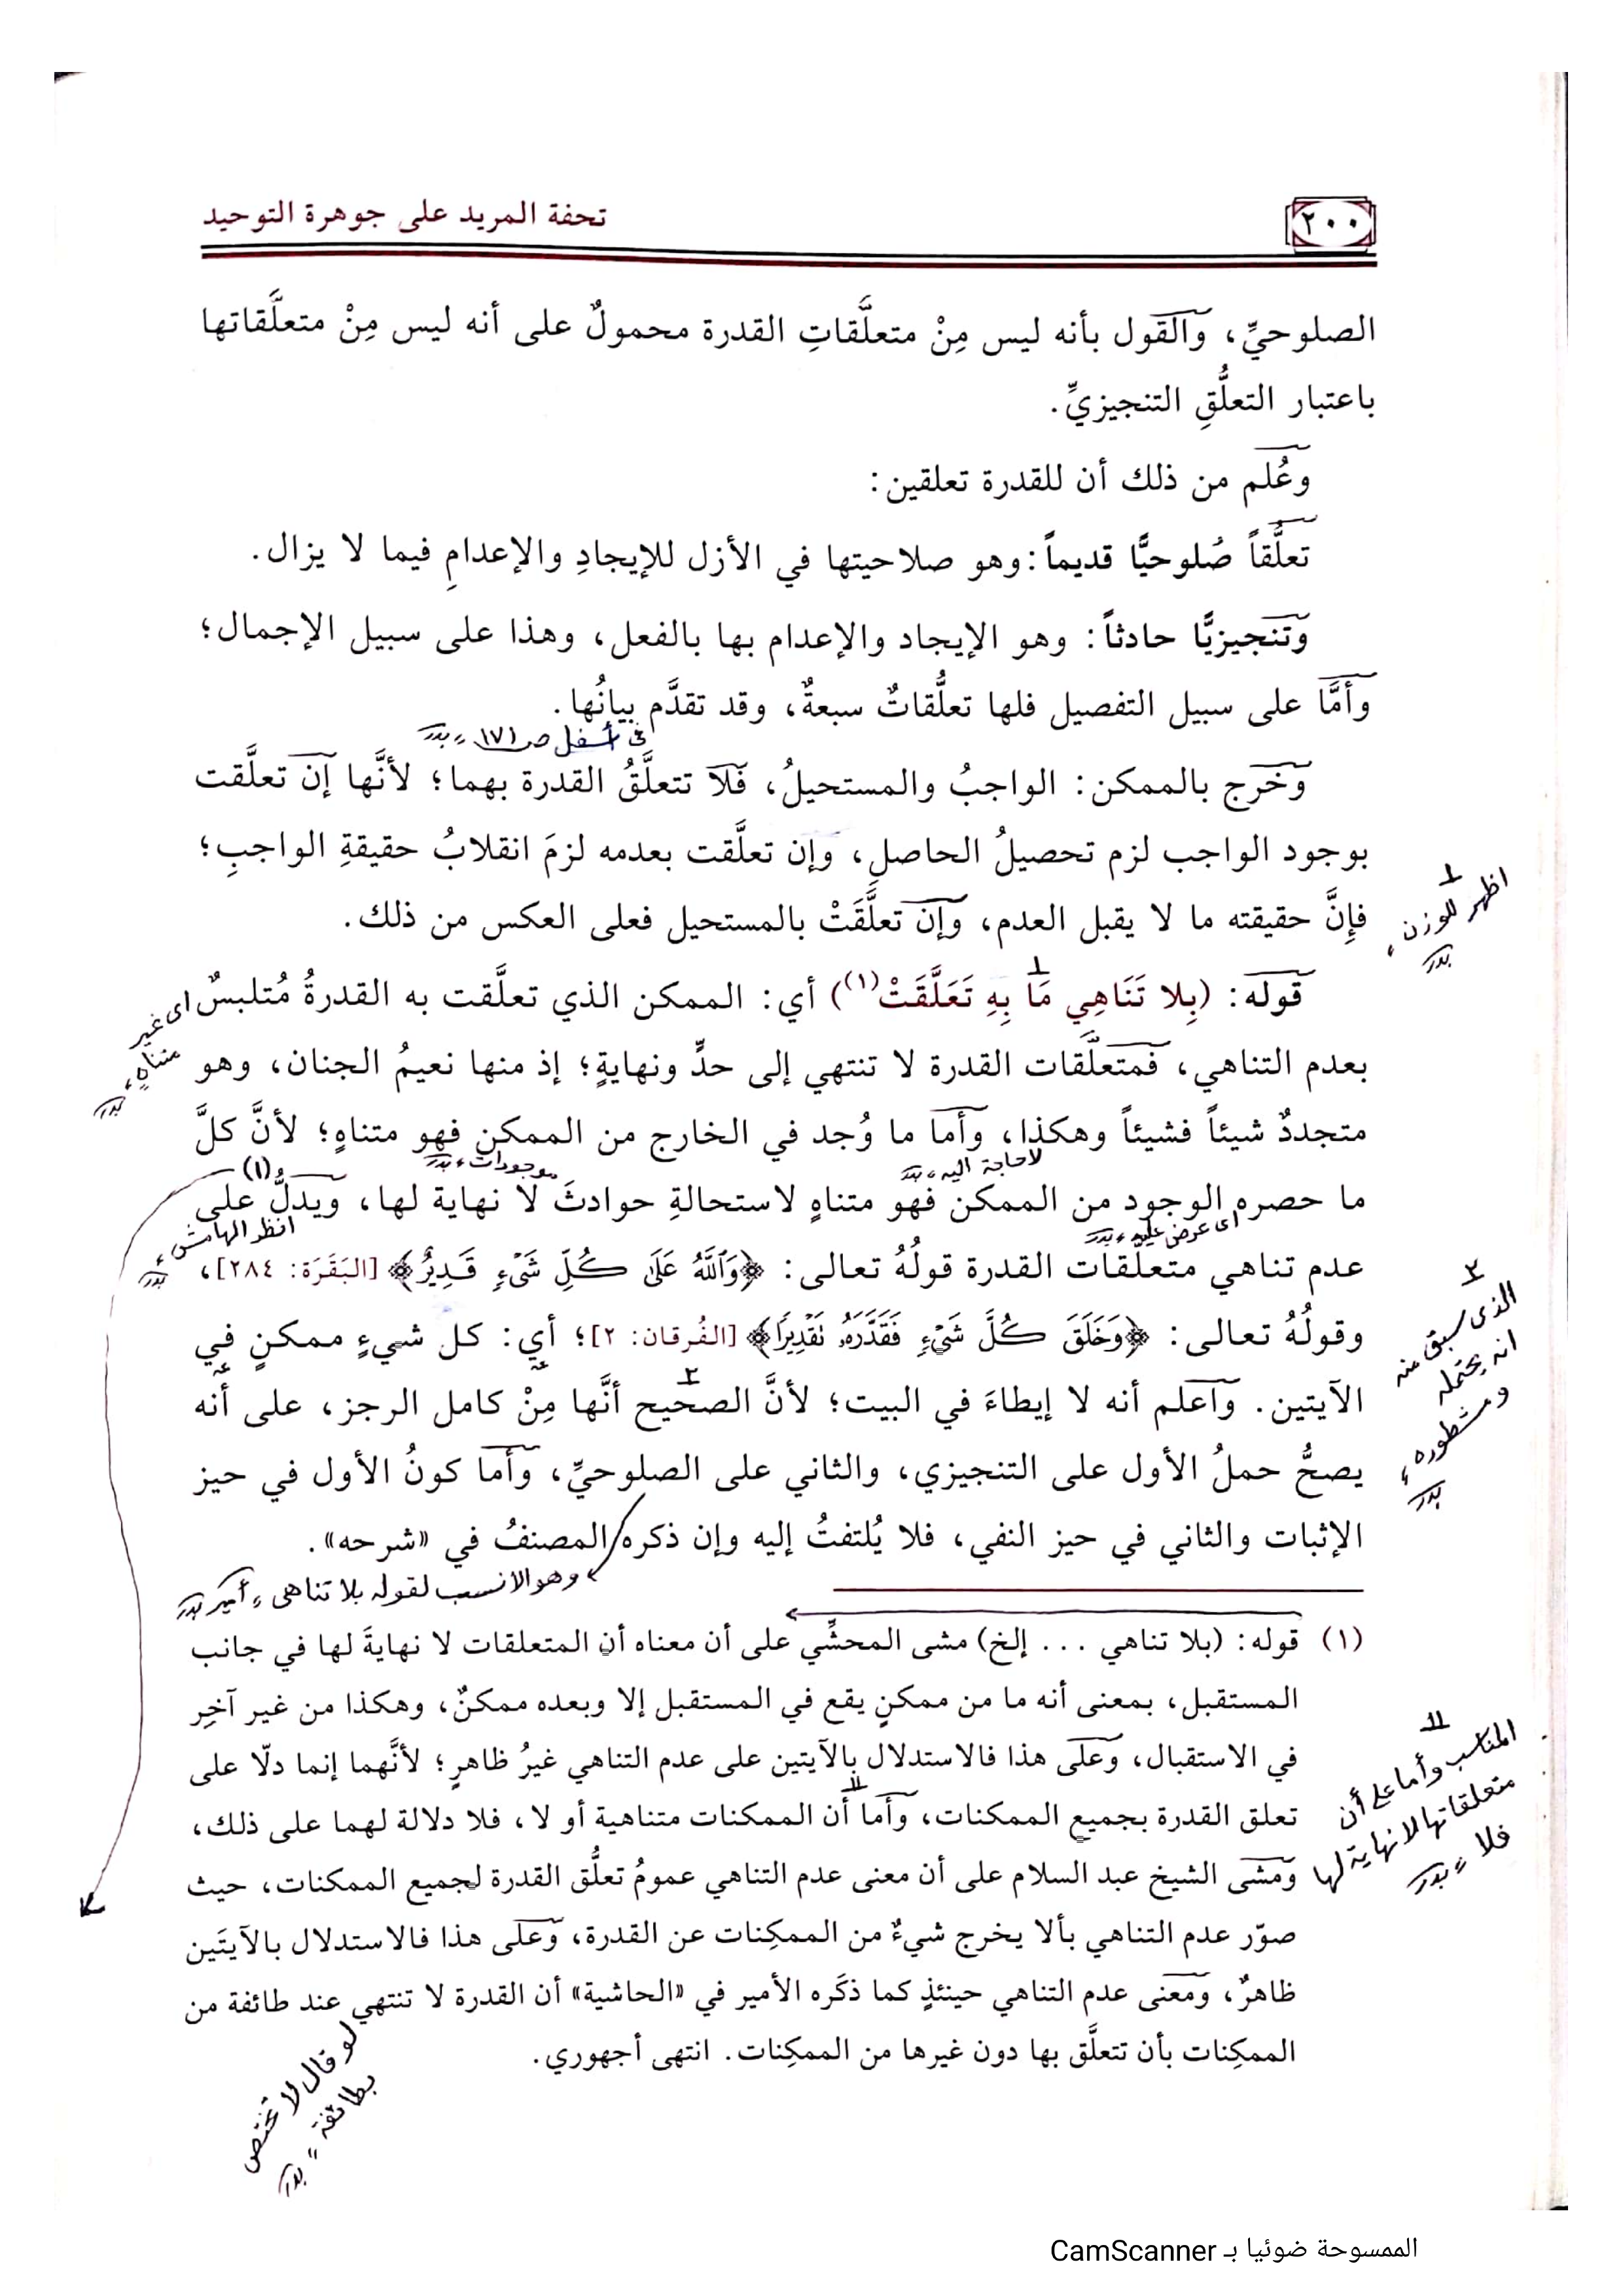 تحفة المريد على جوهرة التوحيد
٢٠٠
الصلوحيِّ، والقول بأنه ليس مِنْ متعلَّقاتِ القدرة محمولٌ على أنه ليس مِنْ متعلَّقاتها
باعتبار التعلُّقِ التنجيزيِّ.
وعُلم من ذلك أن للقدرة تعلقين:
تعلُّقاً صُلوحيًّا قديماً: وهو صلاحيتها في الأزل للإيجادِ والإعدامِ فيما لا يزال.
وتنجيزيًّا حادثاً: وهو الإيجاد والإعدام بها بالفعل، وهذا على سبيل الإجمال؛
وأمَّا على سبيل التفصيل فلها تعلُّقاتٌ سبعةٌ، وقد تقدَّم بيانُها.
في أسفل ص ١٧١ بدر
وخرج بالممكن: الواجبُ والمستحيلُ، فلا تتعلَّقُ القدرة بهما؛ لأنَّها إن تعلَّقت
بوجود الواجب لزم تحصيلُ الحاصلِ، وإن تعلَّقت بعدمه لزمَ انقلابُ حقيقةِ الواجبِ؛
فإنَّ حقيقته ما لا يقبل العدم، وإن تعلَّقَتْ بالمستحيل فعلى العكس من ذلك.
اظهر للوزن، بدر
قوله: (بِلا تَنَاهِي مَا بِهِ تَعَلَّقَتْ(١)) أي: الممكن الذي تعلَّقت به القدرةُ مُتلبسٌ
اى غير متناهٍ، بدر
بعدم التناهي، فمتعلَّقات القدرة لا تنتهي إلى حدٍّ ونهايةٍ؛ إذ منها نعيمُ الجنان، وهو
متجددٌ شيئاً فشيئاً وهكذا، وأما ما وُجد في الخارج من الممكن فهو متناهٍ؛ لأنَّ كلَّ
لا حاجة اليه، بدر
موجودات، بدر
(١)
ما حصره الوجود من الممكن فهو متناهٍ لاستحالةِ حوادثَ لا نهاية لها، ويدلُّ على
اى عرض عليه، بدر
انظر الهامش، بدر
عدم تناهي متعلقات القدرة قولُهُ تعالى: ﴿وَٱللَّهُ عَلَىٰ كُلِّ شَىْءٍ قَدِيرٌ﴾ [البَقَرَة: ٢٨٤]،
وقولُهُ تعالى: ﴿وَخَلَقَ كُلَّ شَىْءٍ فَقَدَّرَهُۥ تَقْدِيرًا﴾ [الفُرقان: ٢]؛ أي: كل شيءٍ ممكنٍ في
الآيتين. واعلم أنه لا إيطاءَ في البيت؛ لأنَّ الصحيح أنَّها مِنْ كامل الرجز، على أنه
الذى سبق منه
انه يحتمله
ومشطوره، بدر
يصحُّ حملُ الأول على التنجيزي، والثاني على الصلوحيِّ، وأما كونُ الأول في حيز
الإثبات والثاني في حيز النفي، فلا يُلتفتُ إليه وإن ذكره المصنفُ في «شرحه».
وهو الانسب لقوله بلا تناهى، أمير بدر
(١) قوله: (بلا تناهي ... إلخ) مشى المحشِّي على أن معناه أن المتعلقات لا نهايةَ لها في جانب
المستقبل، بمعنى أنه ما من ممكنٍ يقع في المستقبل إلا وبعده ممكنٌ، وهكذا من غير آخِر
في الاستقبال، وعلى هذا فالاستدلال بالآيتين على عدم التناهي غيرُ ظاهرٍ؛ لأنَّهما إنما دلّا على
تعلق القدرة بجميع الممكنات، وأما أن الممكنات متناهية أو لا، فلا دلالة لهما على ذلك،
المناسب وأما على أن
متعلقاتها لا نهاية لها
فلا، بدر
ومشى الشيخ عبد السلام على أن معنى عدم التناهي عمومُ تعلُّق القدرة لجميع الممكنات، حيث
صوّر عدم التناهي بألا يخرج شيءٌ من الممكِنات عن القدرة، وعلى هذا فالاستدلال بالآيتَين
ظاهرٌ، ومعنى عدم التناهي حينئذٍ كما ذكَره الأمير في «الحاشية» أن القدرة لا تنتهي عند طائفة من
الممكِنات بأن تتعلَّق بها دون غيرها من الممكِنات. انتهى أجهوري.
لو قال لا تختص
بطائفة، بدر
الممسوحة ضوئيا بـ CamScanner